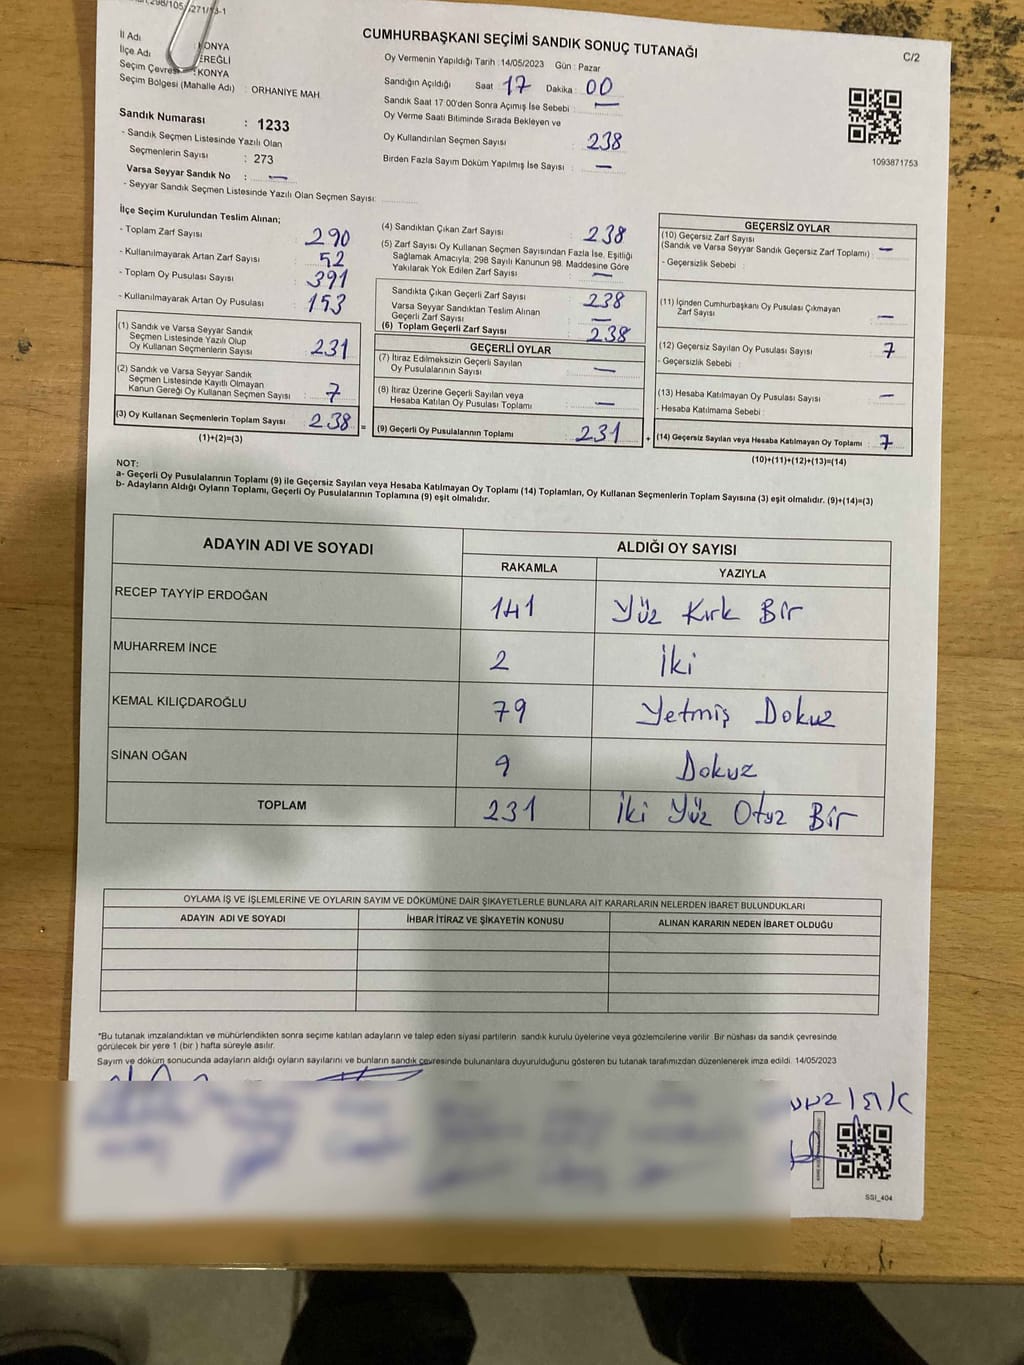 298/105
271/13-1
CUMHURBAŞKANI SEÇİMİ SANDIK SONUÇ TUTANAĞI
C/2
İl Adı : KONYA
İlçe Adı : EREĞLİ
Seçim Çevresi : KONYA
Seçim Bölgesi (Mahalle Adı) : ORHANİYE MAH
Oy Vermenin Yapıldığı Tarih : 14/05/2023 Gün : Pazar
Sandığın Açıldığı Saat 17 Dakika : 00
Sandık Saat 17 00'den Sonra Açımış İse Sebebi : —
Oy Verme Saati Bitiminde Sırada Bekleyen ve
Oy Kullandırılan Seçmen Sayısı : 238
Birden Fazla Sayım Doküm Yapılmış İse Sayısı : —
1093871753
Sandık Numarası : 1233
- Sandık Seçmen Listesinde Yazılı Olan
Seçmenlerin Sayısı : 273
Varsa Seyyar Sandık No : —
- Seyyar Sandık Seçmen Listesinde Yazılı Olan Seçmen Sayısı:
İlçe Seçim Kurulundan Teslim Alınan;
- Toplam Zarf Sayısı : 290
- Kullanılmayarak Artan Zarf Sayısı : 52
- Toplam Oy Pusulası Sayısı : 391
- Kullanılmayarak Artan Oy Pusulası : 153
(1) Sandık ve Varsa Seyyar Sandık
Seçmen Listesinde Yazılı Olup
Oy Kullanan Seçmenlerin Sayısı : 231
(2) Sandık ve Varsa Seyyar Sandık
Seçmen Listesinde Kayıtlı Olmayan
Kanun Gereği Oy Kullanan Seçmen Sayısı : 7
(3) Oy Kullanan Seçmenlerin Toplam Sayısı : 238 =
(1)+(2)=(3)
(4) Sandıktan Çıkan Zarf Sayısı : 238
(5) Zarf Sayısı Oy Kullanan Seçmen Sayısından Fazla İse, Eşitliği
Sağlamak Amacıyla, 298 Sayılı Kanunun 98. Maddesine Göre
Yakılarak Yok Edilen Zarf Sayısı : —
Sandıkta Çıkan Geçerli Zarf Sayısı : 238
Varsa Seyyar Sandıktan Teslim Alınan
Geçerli Zarf Sayısı : —
(6) Toplam Geçerli Zarf Sayısı : 238
GEÇERLİ OYLAR
(7) İtiraz Edilmeksizin Geçerli Sayılan
Oy Pusulalarının Sayısı : —
(8) İtiraz Üzerine Geçerli Sayılan veya
Hesaba Katılan Oy Pusulası Toplamı : —
(9) Geçerli Oy Pusulalarının Toplamı : 231 +
GEÇERSİZ OYLAR
(10) Geçersiz Zarf Sayısı
(Sandık ve Varsa Seyyar Sandık Geçersiz Zarf Toplamı) : —
- Geçersizlik Sebebi :
(11) İçinden Cumhurbaşkanı Oy Pusulası Çıkmayan
Zarf Sayısı : —
(12) Geçersiz Sayılan Oy Pusulası Sayısı : 7
- Geçersizlik Sebebi :
(13) Hesaba Katılmayan Oy Pusulası Sayısı : —
- Hesaba Katılmama Sebebi :
(14) Geçersiz Sayılan veya Hesaba Katılmayan Oy Toplamı : 7
(10)+(11)+(12)+(13)=(14)
NOT:
a- Geçerli Oy Pusulalarının Toplamı (9) ile Geçersiz Sayılan veya Hesaba Katılmayan Oy Toplamı (14) Toplamları, Oy Kullanan Seçmenlerin Toplam Sayısına (3) eşit olmalıdır. (9)+(14)=(3)
b- Adayların Aldığı Oyların Toplamı, Geçerli Oy Pusulalarının Toplamına (9) eşit olmalıdır.
ADAYIN ADI VE SOYADI ALDIĞI OY SAYISI
RAKAMLA YAZIYLA
RECEP TAYYİP ERDOĞAN 141 Yüz Kırk Bir
MUHARREM İNCE 2 İki
KEMAL KILIÇDAROĞLU 79 Yetmiş Dokuz
SİNAN OĞAN 9 Dokuz
TOPLAM 231 İki Yüz Otuz Bir
OYLAMA İŞ VE İŞLEMLERİNE VE OYLARIN SAYIM VE DÖKÜMÜNE DAİR ŞİKAYETLERLE BUNLARA AİT KARARLARIN NELERDEN İBARET BULUNDUKLARI
ADAYIN ADI VE SOYADI İHBAR İTİRAZ VE ŞİKAYETİN KONUSU ALINAN KARARIN NEDEN İBARET OLDUĞU
*Bu tutanak imzalandıktan ve mühürlendikten sonra seçime katılan adayların ve talep eden siyasi partilerin sandık kurulu üyelerine veya gözlemcilerine verilir. Bir nüshası da sandık çevresinde
görülecek bir yere 1 (bir ) hafta süreyle asılır.
Sayım ve döküm sonucunda adayların aldığı oyların sayılarını ve bunların sandık çevresinde bulunanlara duyurulduğunu gösteren bu tutanak tarafımızdan düzenlenerek imza edildi. 14/05/2023
SSI_404